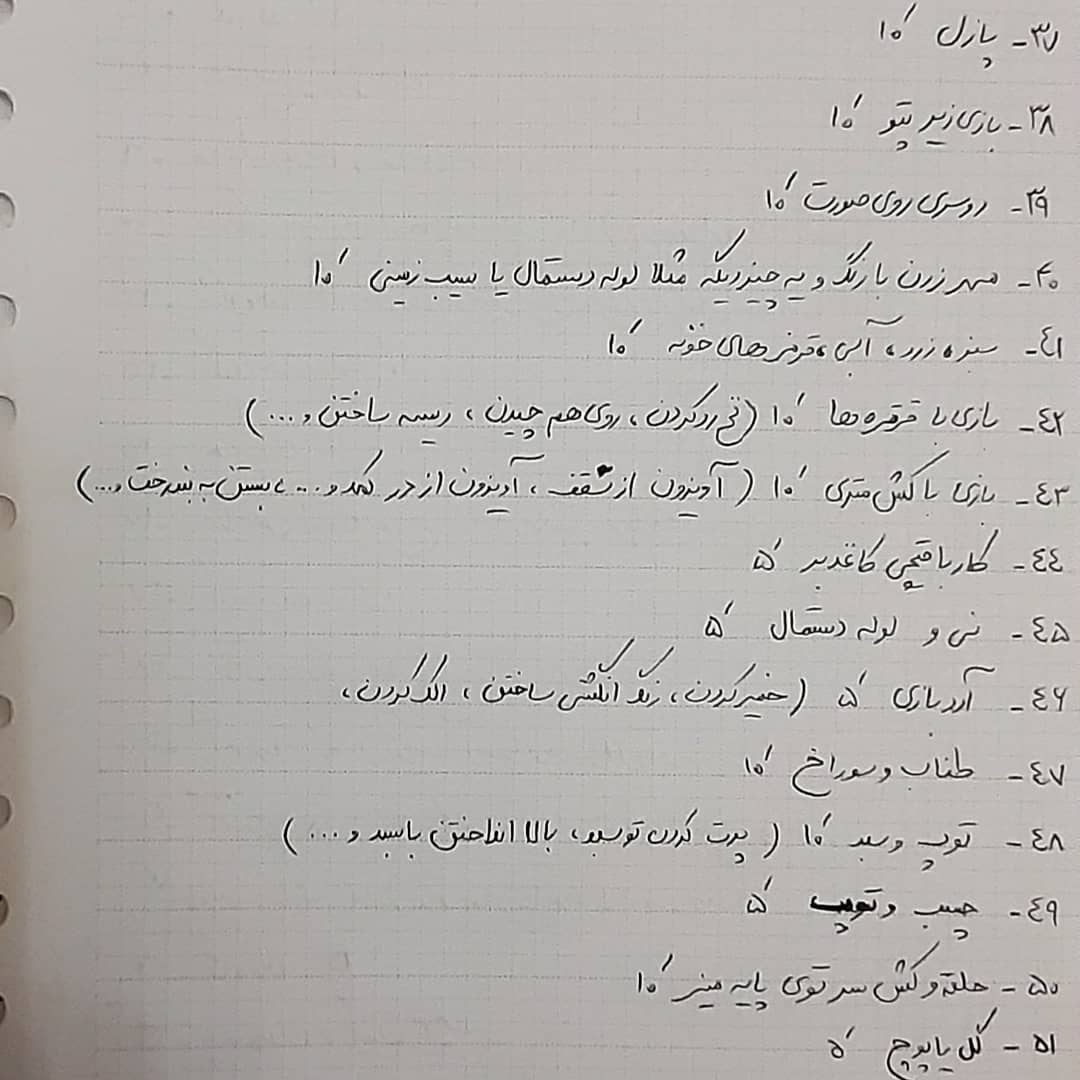 ۳۷- پازل ۱۰َ
۳۸- بازی زیر پتو ۱۰َ
۳۹- روسری روی صورت ۱۰َ
۴۰- مهر زدن با رنگ و یه چیز دیگه مثلا لوله دستمال یا سیب زمینی ۱۰َ
۴۱- سبز، زرد، آبی، قرمز های خونه ۱۰َ
۴۲- بازی با قرقره ها ۱۰َ (نخ رد کردن، روی هم چیدن، ریسه ساختن و ...)
۴۳- بازی با کش متری ۱۰َ (آویزون از سقف، آویزون از در کمد و ... ، بستن به درخت و ...)
۴۴- کار با قیچی کاغذ بر ۵َ
۴۵- نی و لوله دستمال ۵َ
۴۶- آرد بازی ۵َ (خمیر کردن، رنگ انگشتی ساختن، الک کردن،
۴۷- طناب و سوراخ ۱۰َ
۴۸- توپ و سبد ۱۰َ (پرت کردن تو سبد، بالا انداختن با سبد و ...)
۴۹- چسب و توپ ۵َ
۵۰- حلقه و کش سر توی پایه میز ۱۰َ
۵۱- گل یا پوچ ۵َ